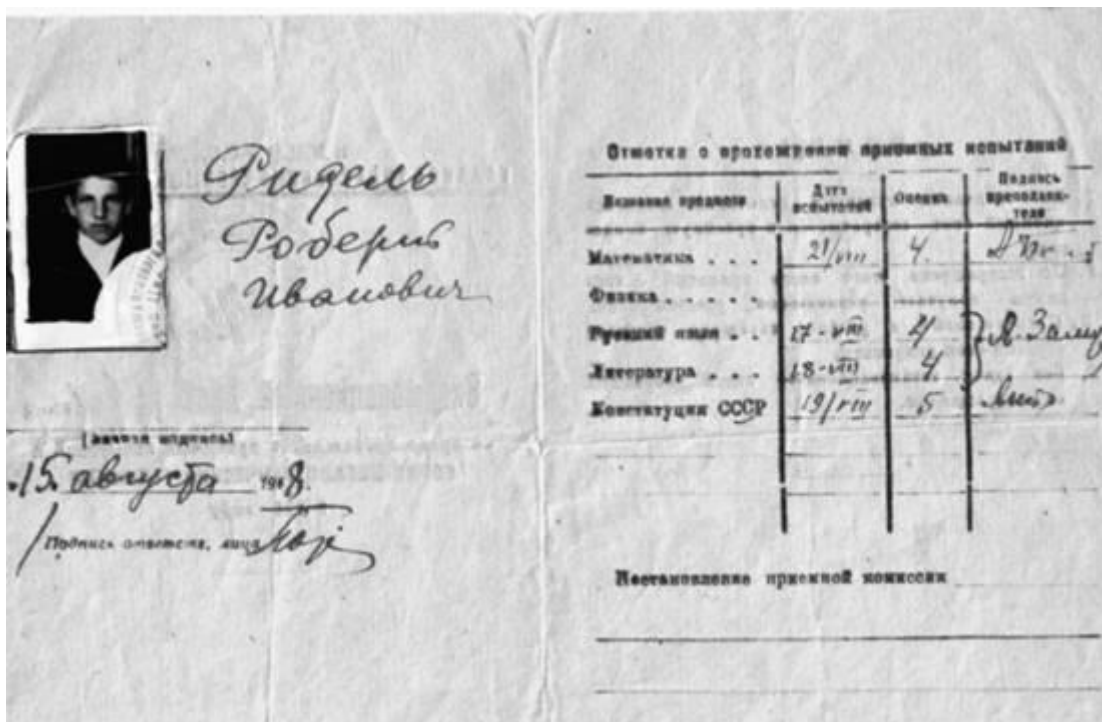 Ридель
Роберт
Иванович
(личная подпись)
15 августа 1948.
Подпись ответств. лица
Отметка о прохождении приемных испытаний
Название предмета Дата испытаний Оценка Подпись преподавателя
Математика . . . 21/VIII 4.
Физика . . . . .
Русский язык . . 17-VIII 4
Литература . . . 18-VIII 4.
Конституция СССР 19/VIII 5
Постановление приемной комиссии